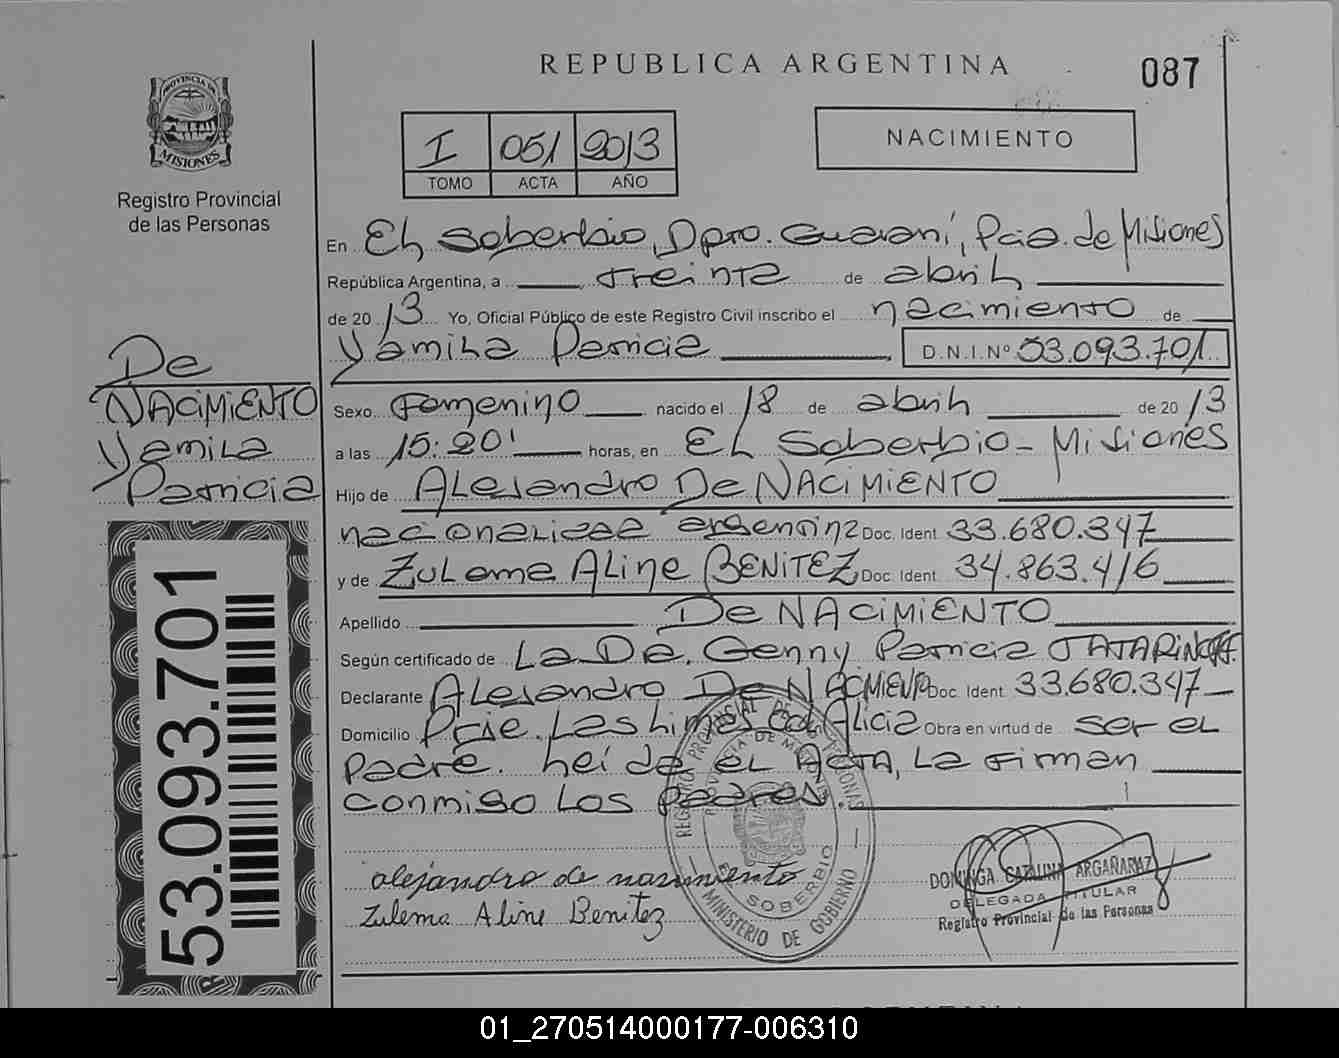 REPUBLICA ARGENTINA
087
PROVINCIA DE
MISIONES
Registro Provincial
de las Personas
I 051 2013
TOMO ACTA AÑO
NACIMIENTO
En El Soberbio, Dpto. Guaraní, Pcia. de Misiones
República Argentina, a treinta de abril
de 2013 Yo, Oficial Público de este Registro Civil inscribo el nacimiento de
Yamila Patricia D.N.I.Nº 53.093.701
De
NACIMIENTO
Yamila
Patricia
Sexo Femenino nacido el 18 de abril de 2013
a las 15:20' horas, en El Soberbio - Misiones
Hijo de Alejandro De NACIMIENTO
nacionalidad argentina Doc. Ident. 33.680.347
y de Zulema Aline BENITEZ Doc. Ident. 34.863.416
Apellido De NACIMIENTO
Según certificado de La Dra. Genny Patricia
Declarante Alejandro De NACIMIENTO Doc. Ident. 33.680.347
Domicilio Pje. Las Limas Col. Alicia Obra en virtud de ser el
padre. Leída el Acta, la firman
conmigo los padres.
53.093.701
alejandro de nacimiento
Zulema Aline Benitez
REGISTRO PROVINCIAL DE LAS PERSONAS
PROVINCIA DE MISIONES
EL SOBERBIO
MINISTERIO DE GOBIERNO
DOMINGA CATALINA ARGAÑARAZ
DELEGADA TITULAR
Registro Provincial de las Personas
01_270514000177-006310